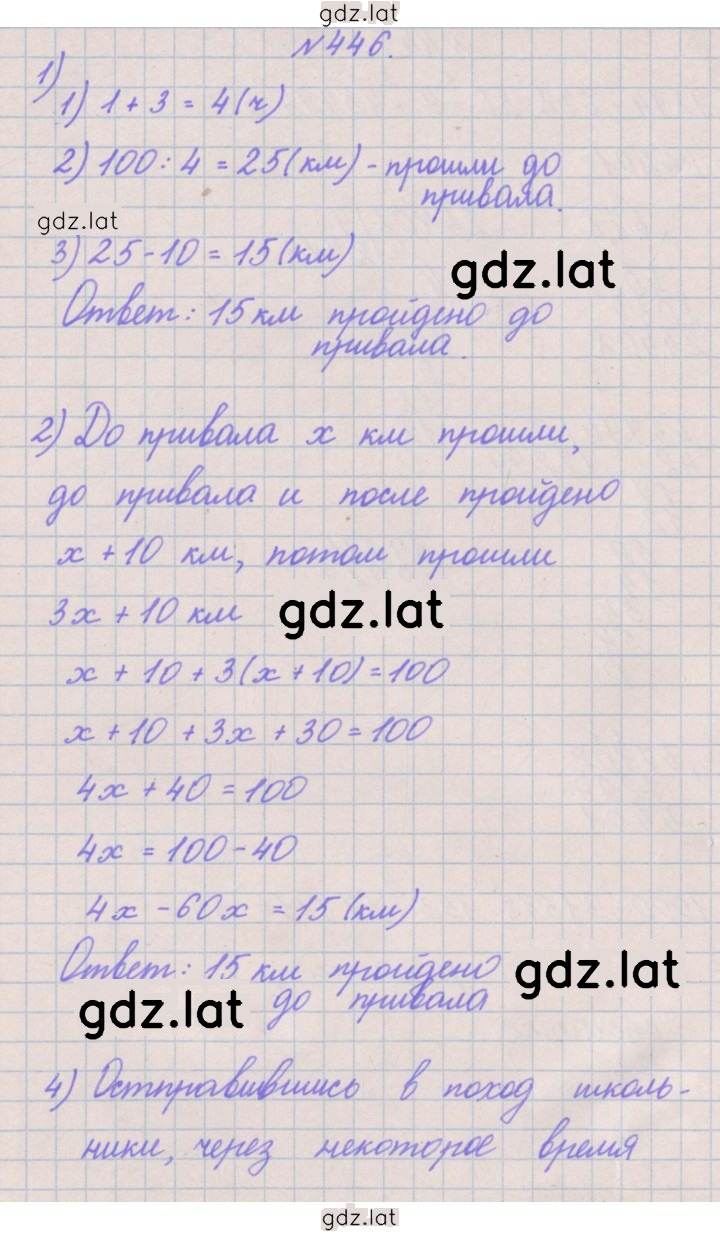 gdz.lat
№446.
1)
1) 1 + 3 = 4 (ч)
2) 100 : 4 = 25 (км) - прошли до
привала.
gdz.lat
3) 25 - 10 = 15 (км)
gdz.lat
Ответ: 15 км пройдено до
привала.
2) До привала x км прошли,
до привала и после пройдено
x + 10 км, потом прошли
3x + 10 км
gdz.lat
x + 10 + 3(x + 10) = 100
x + 10 + 3x + 30 = 100
4x + 40 = 100
4x = 100 - 40
4x - 60x = 15 (км)
Ответ: 15 км пройдено
gdz.lat
до привала
gdz.lat
4) Остправившись в поход школь-
ники, через некоторое время
gdz.lat